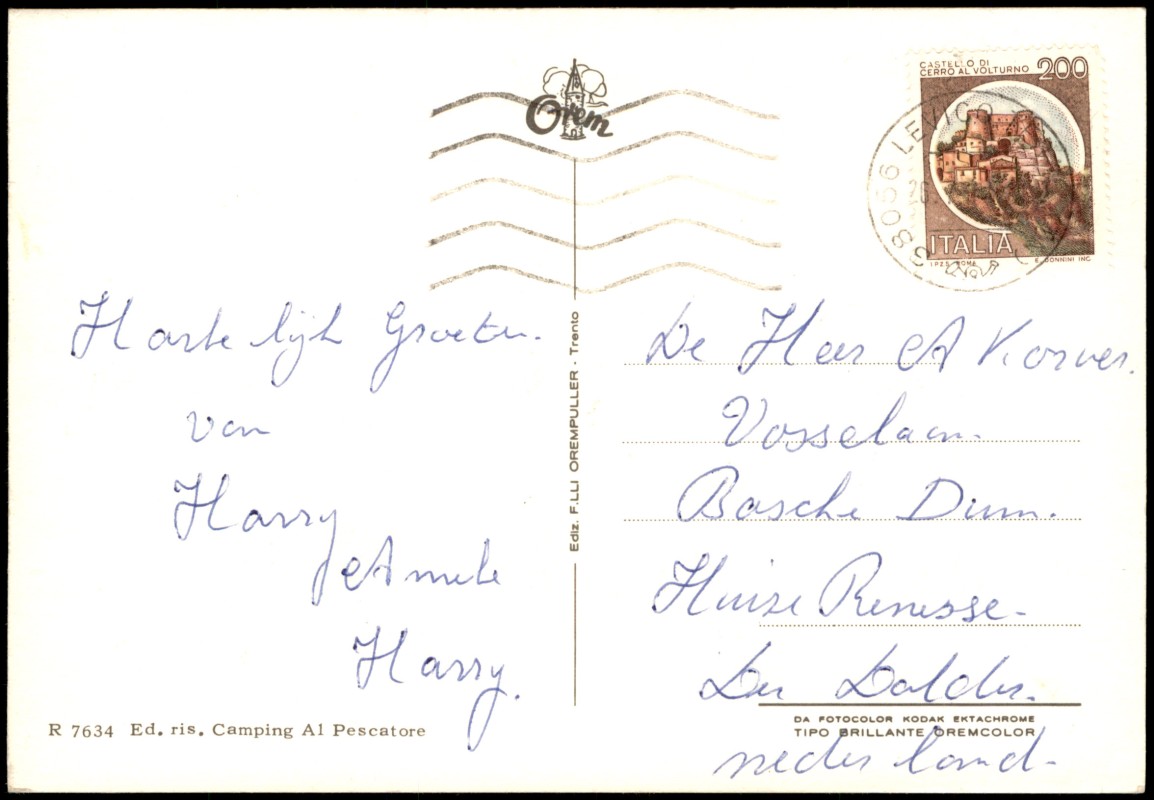 Orem
CASTELLO DI
CERRO AL VOLTURNO 200
38056 LEVICO
20
ITALIA
I.P.Z.S. ROMA E. DONNINI INC.
Hartelijk Groeten.
van
Harry
Harry.
De Heer A Korver.
Vosselaan.
Bosche Duin.
Huize Renesse-
Den Dolder.
nederland-
Ediz. F.LLI OREMPULLER - Trento
R 7634 Ed. ris. Camping Al Pescatore
DA FOTOCOLOR KODAK EKTACHROME
TIPO BRILLANTE OREMCOLOR